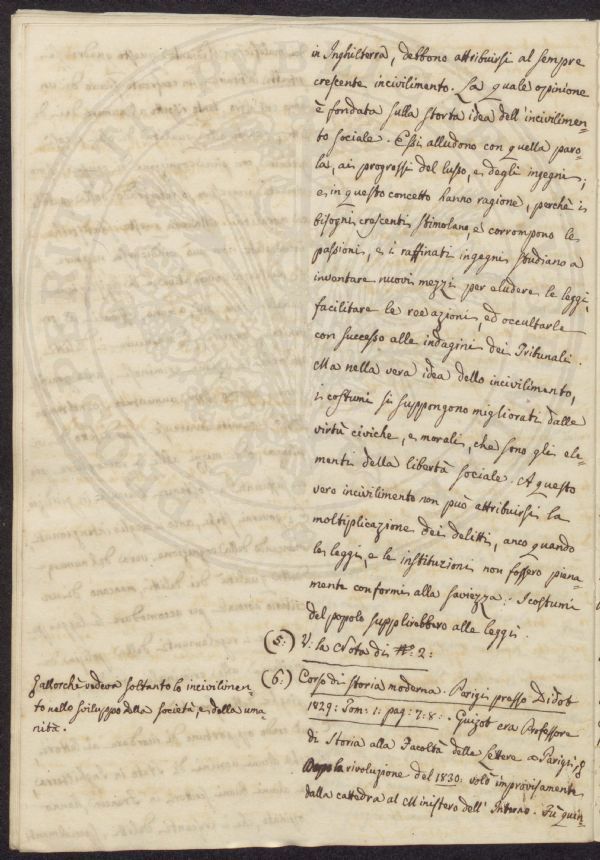 in Inghilterra, debbono attribuirsi al sempre
crescente incivilimento. La quale opinione
è fondata sulla storta idea dell'incivilimen-
to sociale. Essi alludono con quella paro-
la, ai progressi del lusso, e degli ingegni;
e in questo concetto hanno ragione, perchè i
bisogni crescenti stimolano, e corrompono le
passioni, e i raffinati ingegni studiano a
inventare nuovi mezzi per eludere le leggi,
facilitare le ree azioni, ed occultarle
con successo alle indagini dei Tribunali.
Ma nella vera idea dello incivilimento,
i costumi si suppongono migliorati dalle
virtù civiche, e morali, che sono gli ele-
menti della libertà sociale. A questo
vero incivilimento non può attribuirsi la
moltiplicazione dei delitti, anco quando
le leggi, e le instituzioni non fossero piena-
mente conformi alla saviezza. I costumi
del popolo supplirebbero alle leggi.
(5:) V: la Nota di N°: 2:
(6:) Corso di Storia moderna. Parigi presso Didot
1829: Tom: 1: pag: 7: 8: . Guizot era Professore
di Storia alla Facoltà delle Lettere a Parigi,
Dopo la rivoluzione del 1830: volò improvisamente
dalla cattedra al Ministero dell'Interno. Fù quin-
allorchè vedeva soltanto lo incivilimen-
to nello sviluppo della società, e della uma-
nità.